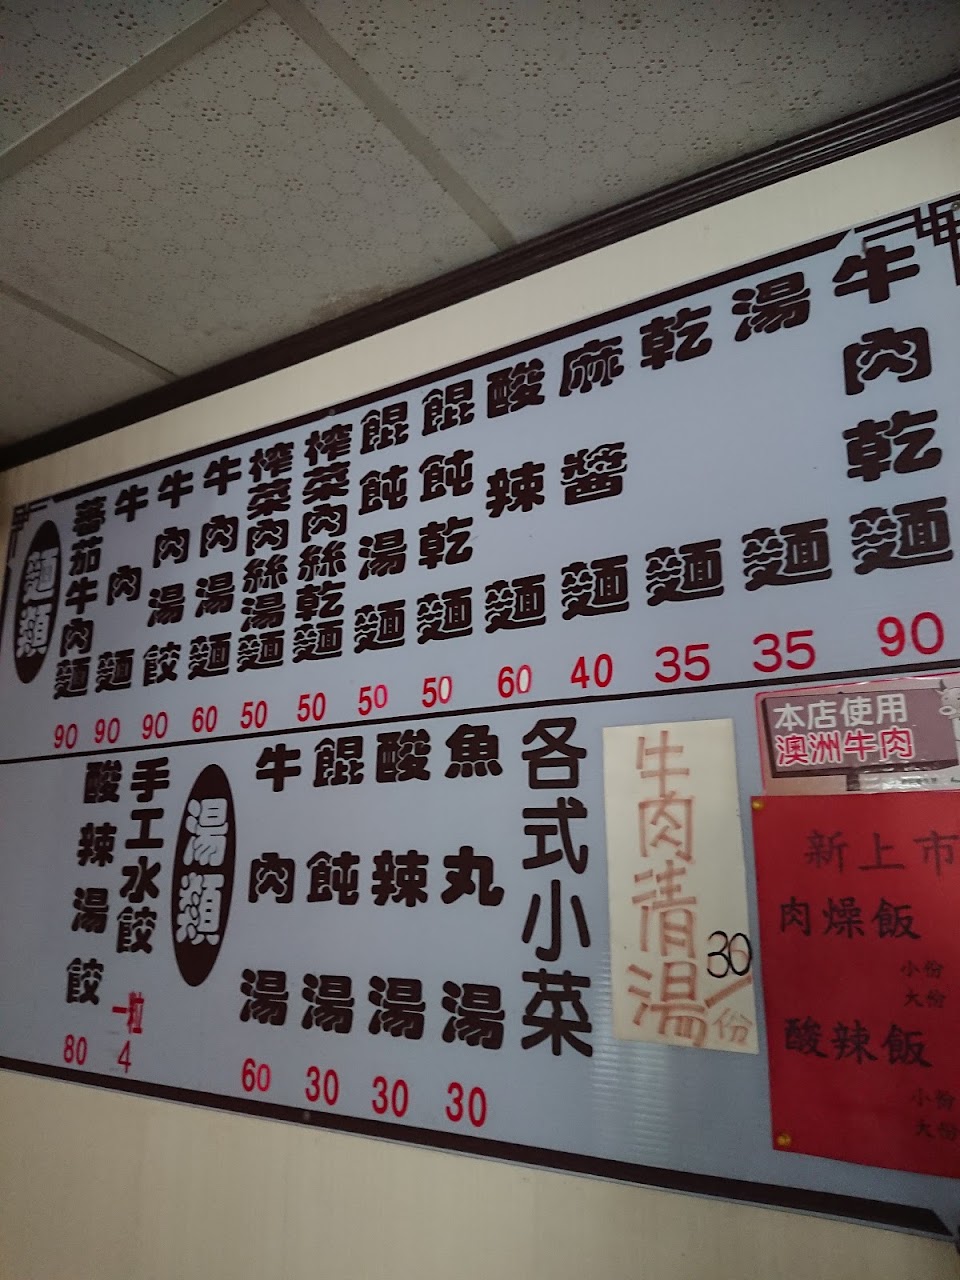 麵類
蕃茄牛肉麵 90
牛肉麵 90
牛肉湯餃 90
牛肉湯麵 60
榨菜肉絲湯麵 50
榨菜肉絲乾麵 50
餛飩湯麵 50
餛飩乾麵 50
酸辣麵 60
麻醬麵 40
乾麵 35
湯麵 35
牛肉乾麵 90
酸辣湯餃 80
手工水餃 一粒 4
湯類
牛肉湯 60
餛飩湯 30
酸辣湯 30
魚丸湯 30
各式小菜
牛肉清湯 30/份
本店使用
澳洲牛肉
新上市
肉燥飯
小份
大份
酸辣飯
小份
大份